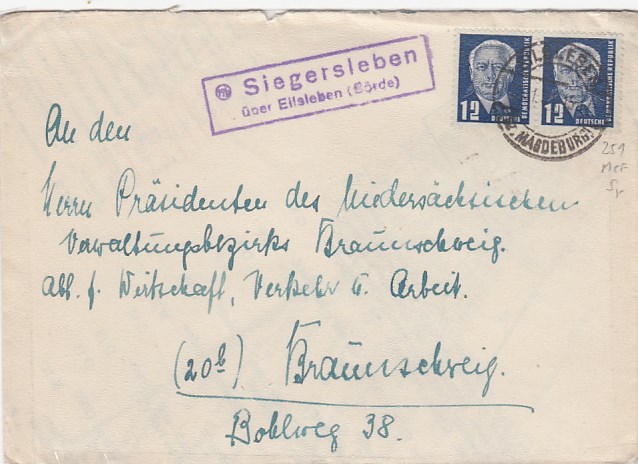 Siegersleben
über Eilsleben (Börde)
12 DEUTSCHE DEMOKRATISCHE REPUBLIK
12 DEUTSCHE DEMOKRATISCHE REPUBLIK
MAGDEBURG
259
MeF
An den
Herrn Präsidenten des Niedersächsischen
Verwaltungsbezirks Braunschweig.
Abt. f. Wirtschaft, Verkehr u. Arbeit.
(20b) Braunschweig.
Bohlweg 38.